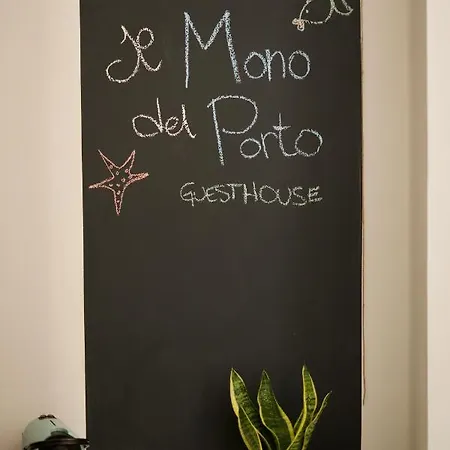 Il Mono
del Porto
GUESTHOUSE